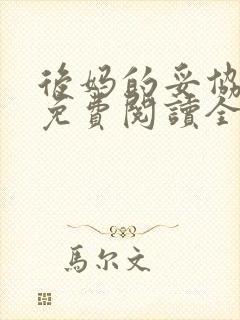 後妈的妥協
免費閱讀全
馬尔文